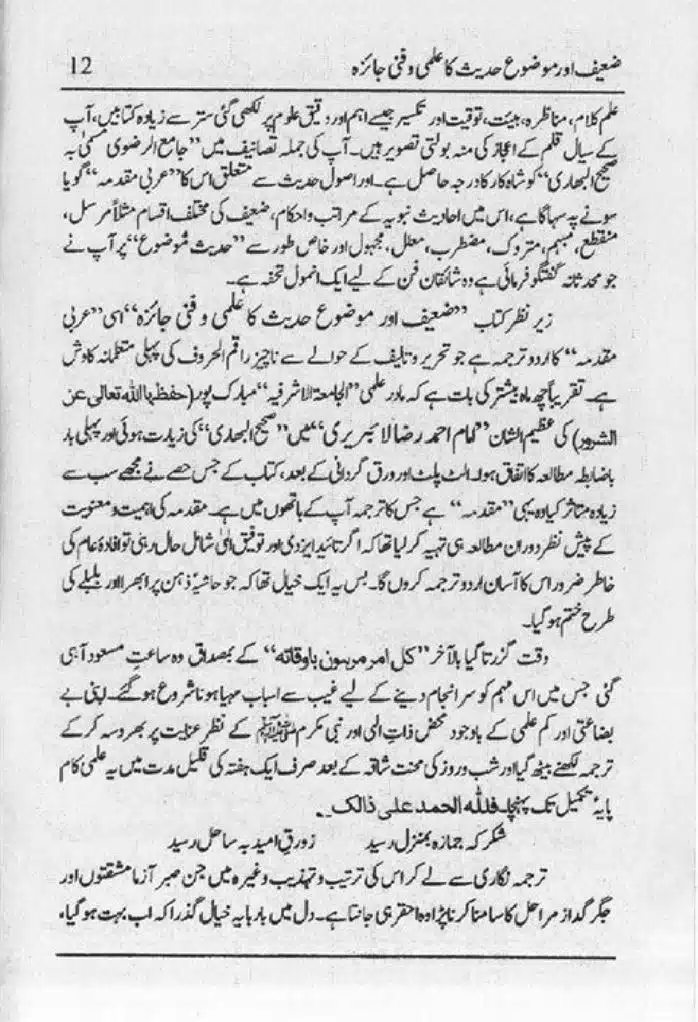 ضعیف اور موضوع حدیث کا علمی و فنی جائزہ 12
علم کلام، مناظرہ، ہیئت، توقیت اور تکسیر جیسے اہم اور دقیق علوم پر لکھی گئی ستر سے زیادہ کتابیں، آپ
کے سیال قلم کے اعجاز کی منہ بولتی تصویر ہیں۔ آپ کی جملہ تصانیف میں ”جامع الرضوی مسمیٰ بہ
صحیح البھاری“ کو شاہ کار کا درجہ حاصل ہے۔ اور اصول حدیث سے متعلق اس کا ”عربی مقدمہ“ گویا
سونے پہ سہاگا ہے، اس میں احادیث نبویہ کے مراتب و احکام، ضعیف کی مختلف اقسام مثلاً مرسل،
منقطع، مبہم، متروک، مضطرب، معلل، مجہول اور خاص طور سے ”حدیث موضوع“ پر آپ نے
جو محدثانہ گفتگو فرمائی ہے وہ شائقان فن کے لیے ایک انمول تحفہ ہے۔
زیر نظر کتاب ”ضعیف اور موضوع حدیث کا علمی و فنی جائزہ“ اسی ”عربی
مقدمہ“ کا اردو ترجمہ ہے جو تحریر و تالیف کے حوالے سے ناچیز راقم الحروف کی پہلی متعلمانہ کاوش
ہے۔ تقریباً چھ ماہ پیشتر کی بات ہے کہ مادر علمی ”الجامعۃ الاشرفیہ“ مبارک پور (حفظہا اللہ تعالی عن
الشرور) کی عظیم الشان ”امام احمد رضا لائبریری“ میں ”صحیح البھاری“ کی زیارت ہوئی اور پہلی بار
باضابطہ مطالعہ کا اتفاق ہوا۔ الٹ پلٹ اور ورق گردانی کے بعد، کتاب کے جس حصے نے مجھے سب سے
زیادہ متاثر کیا وہ یہی ”مقدمہ“ ہے جس کا ترجمہ آپ کے ہاتھوں میں ہے۔ مقدمہ کی اہمیت و معنویت
کے پیش نظر دوران مطالعہ ہی تہیہ کر لیا تھا کہ اگر تائید ایزدی اور توفیق الٰہی شامل حال رہی تو افادۂ عام کی
خاطر ضرور اس کا آسان اردو ترجمہ کروں گا۔ بس یہ ایک خیال تھا کہ جو حاشیۂ ذہن پر ابھرا اور بلبلے کی
طرح ختم ہو گیا۔
وقت گزرتا گیا بالآخر ”کل امر مرہون باوقاتہ“ کے بمصداق وہ ساعتِ مسعود آ ہی
گئی جس میں اس مہم کو سر انجام دینے کے لیے غیب سے اسباب مہیا ہونا شروع ہو گئے۔ اپنی بے
بضاعتی اور کم علمی کے باوجود محض ذاتِ الٰہی اور نبی مکرم ﷺ کے نظر عنایت پر بھروسہ کر کے
ترجمہ لکھنے بیٹھ گیا اور شب و روز کی محنت شاقہ کے بعد صرف ایک ہفتہ کی قلیل مدت میں یہ علمی کام
پایۂ تکمیل تک پہنچا۔ فللہ الحمد علی ذالک۔
شکر کہ جمازہ بمنزل رسید زورقِ امید بہ ساحل رسید
ترجمہ نگاری سے لے کر اس کی ترتیب و تہذیب وغیرہ میں جن صبر آزما مشقتوں اور
جگر گداز مراحل کا سامنا کرنا پڑا وہ احقر ہی جانتا ہے۔ دل میں بارہا یہ خیال گذرا کہ اب بہت ہو گیا،